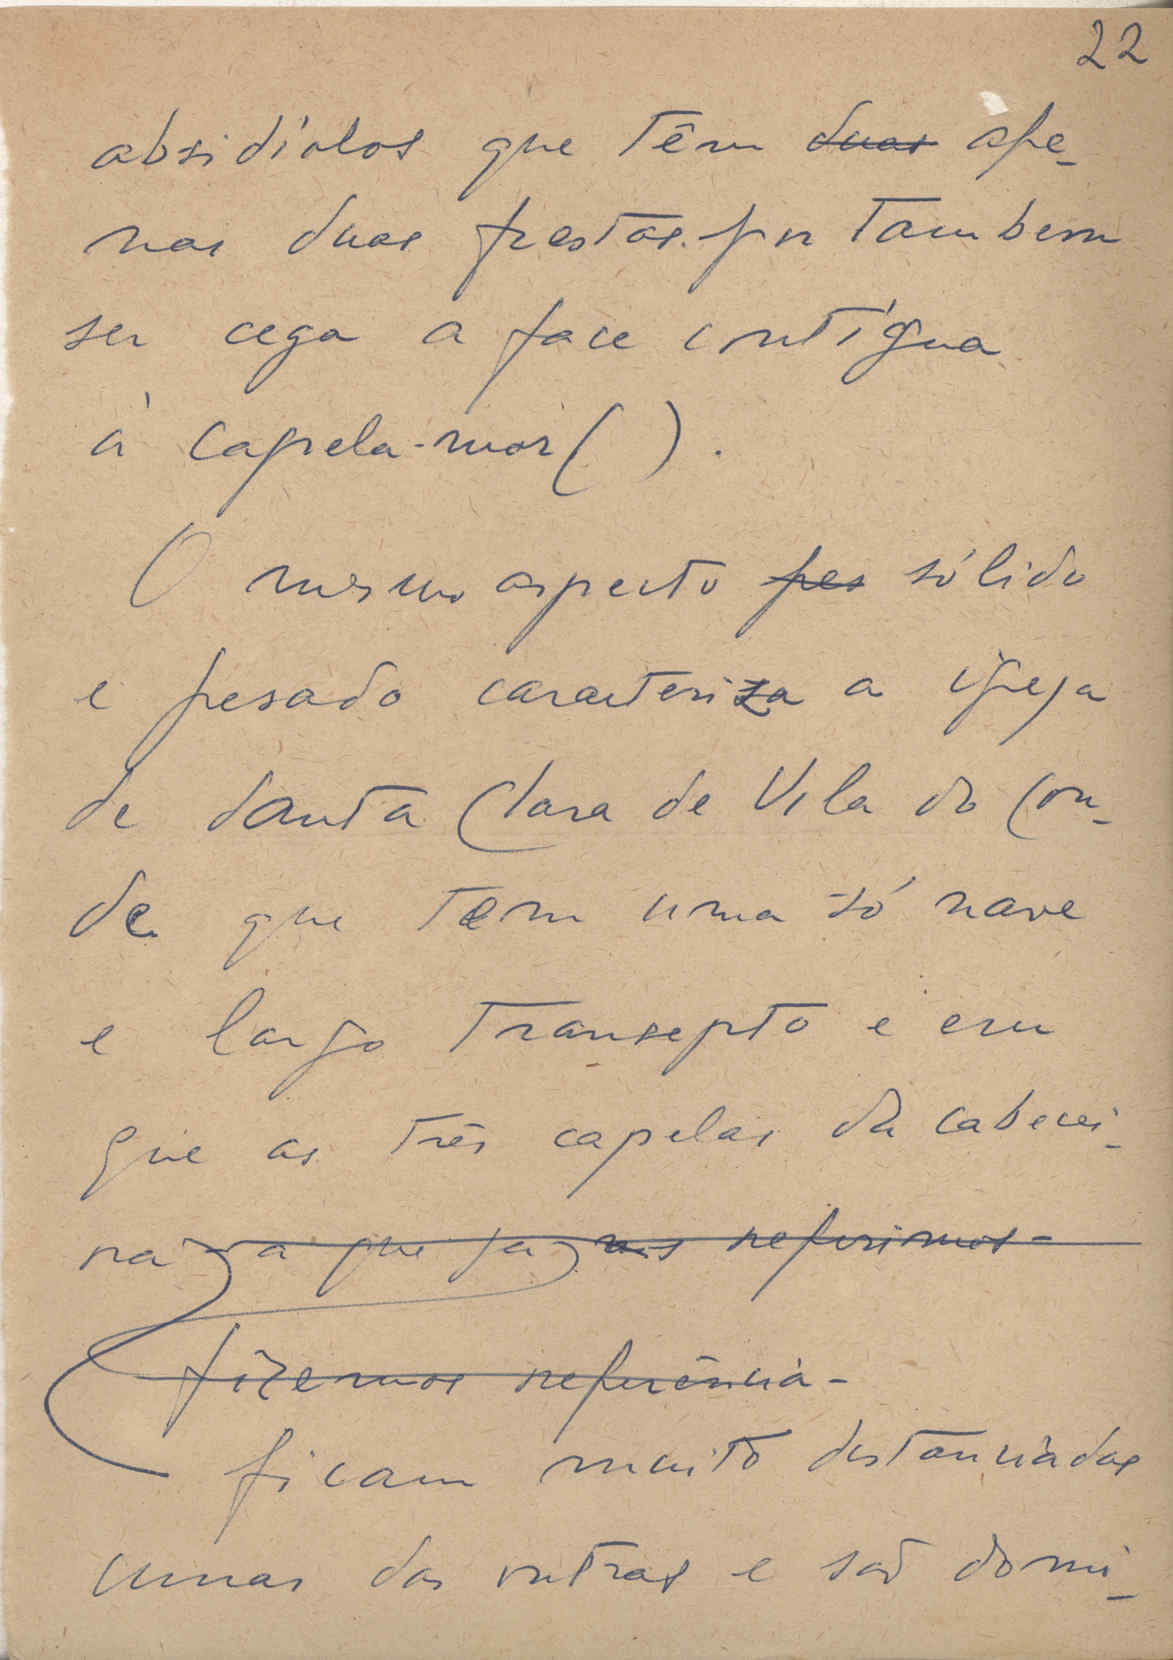 22
absidíolos que têm duas ape-
nas duas frestas por tambem
ser cega a face contígua
à capela-mor ( ).
O mesmo aspecto pes sólido
e pesado caracteriza a igreja
de Santa Clara de Vila do Con-
de que tem uma só nave
e largo transepto e em
que as três capelas da cabecei-
ra a que já nos referimos -
fizemos referência -
ficam muito distanciadas
umas das outras e são domi-